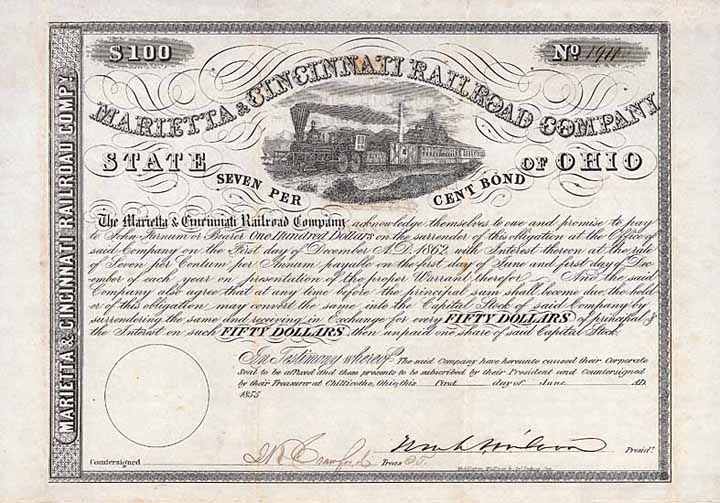 $100
No 
MARIETTA & CINCINNATI RAILROAD COMPANY
STATE OF OHIO
SEVEN PER CENT BOND
MARIETTA & CINCINNATI RAILROAD COMPY.
The Marietta & Cincinnati Railroad Company acknowledge themselves to owe and promise to pay
to John Farnum or Bearer One Hundred Dollars on the surrender of this obligation at the Office of
said Company on the First day of December A.D. 1862 with Interest thereon at the rate
of Seven per Centum per Annum payable on the first day of June and first day of Dec-
ember of each year on presentation of the proper Warrant therefor. And the said
Company also agree that at any time before the principal sum shall become due the hold-
er of this obligation, may invest the same into the Capital Stock of said Company by
surrendering the same and receiving in Exchange for every FIFTY DOLLARS of principal &
the Interest on such FIFTY DOLLARS then unpaid one share of said Capital Stock.
In Testimony whereof The said Company have hereunto caused their Corporate
Seal to be affixed and these presents to be subscribed by their President and Countersigned
by their Treasurer at Chillicothe, Ohio, this First day of June AD.
1855
Countersigned Crawford Treas Wilson Presidt.